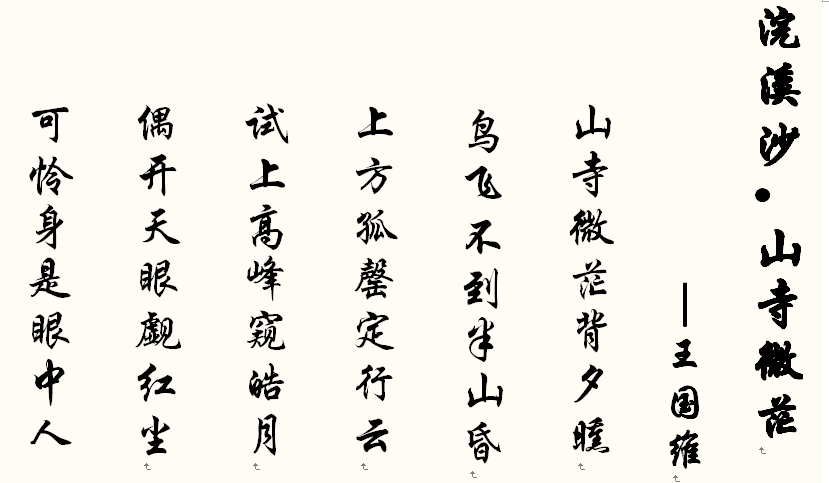 浣溪沙·山寺微茫
—王国维
山寺微茫背夕曛
鸟飞不到半山昏
上方孤罄定行云
试上高峰窥皓月
偶开天眼觑红尘
可怜身是眼中人